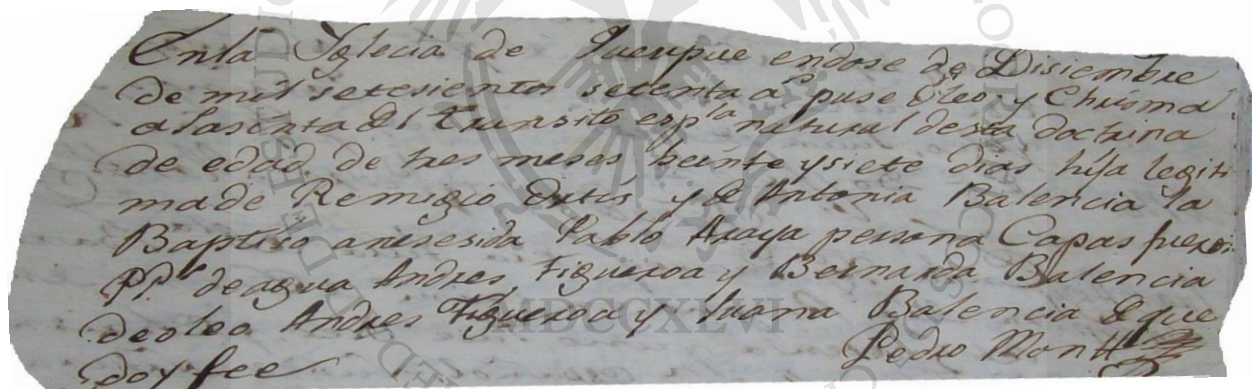 En la Yglecia de Quenpue en dose de Disiembre
de mil setesientos setenta a.s puse óleo, y Chrisma
a Jasinta del Transito esp.la natural desta doctrina
de edad de tres meses beinte y siete dias hija legiti
ma de Remigio Ortis y de Antonia Balencia la
Baptiso a nesesida Pablo Araya persona Capas fueron
PP. de agua Andres Figueroa y Bernarda Balencia
de oleo Andres Figueroa y Juana Balencia de que
doy fee Pedro Montt
MDCCXLVI